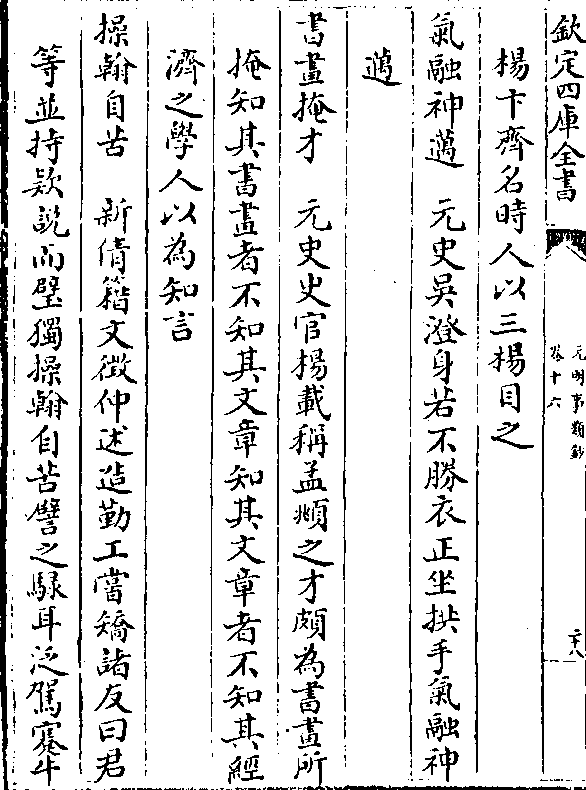 欽定四庫全書
元明事類鈔
卷十六
二十八
楊卞齊名時人以三楊目之
氣融神邁　元史吳澄身若不勝衣正坐拱手氣融神
邁
書畫掩才　元史史官楊載稱孟頫之才頗為書畫所
掩知其書畫者不知其文章知其文章者不知其經
濟之學人以為知言
操翰自苦　新倩籍文徵仲述造勤工當矯諸友曰君
等並持欵說而璧獨操翰自苦譬之騄耳泛駕蹇牛